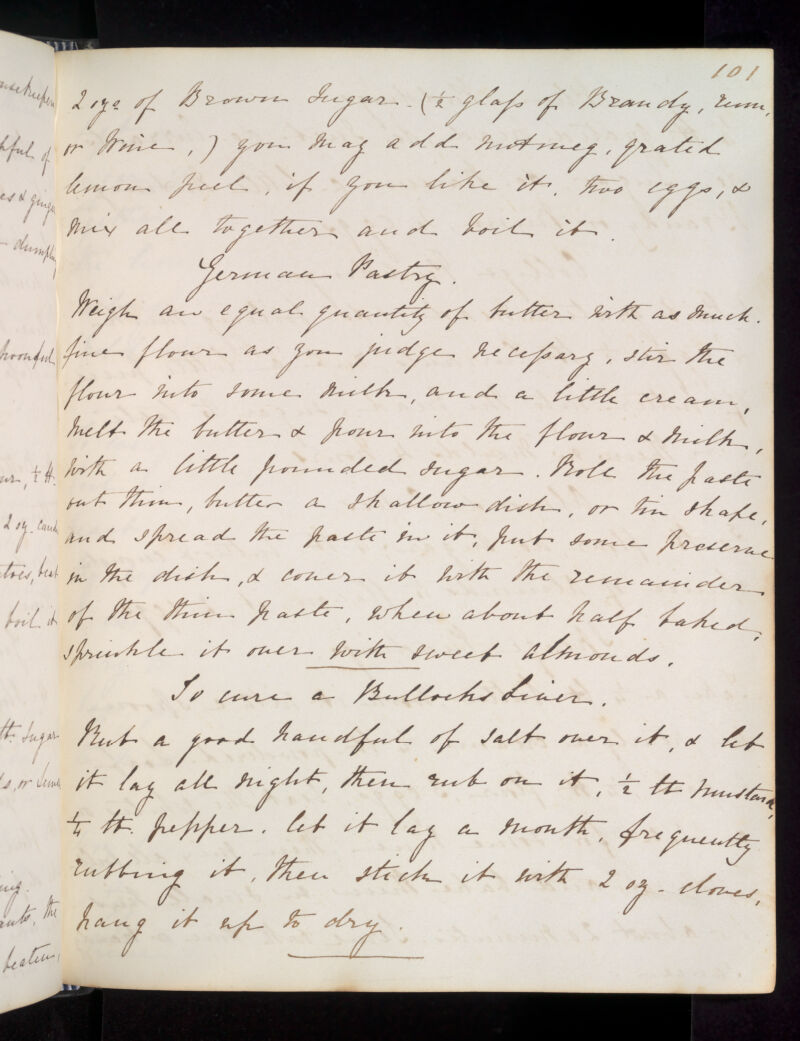 101
2 ozs of Brown Sugar. (½ glass of Brandy, rum,
or Wine,) you may add nutmeg, grated
lemon peel, if you like it, two eggs, &
mix all together and boil it.
German Pastry.
Weigh an equal quantity of butter with as much
fine flour as you judge necessary, stir the
flour into some milk, and a little cream,
melt the butter & pour into the flour & milk,
with a little pounded sugar. Roll the paste
out thin, butter a shallow dish, or tin shape,
and spread the paste in it, put some preserve
in the dish, & cover it with the remainder
of the thin paste, when about half baked,
sprinkle it over with sweet almonds.
To cure a Bullocks Liver.
Rub a good handful of salt over it, & let
it lay all night, then rub on it, ½ lb mustard,
¼ lb. pepper. let it lay a month, frequently
rubbing it, then stick it with 2 oz. cloves,
hang it up to dry.